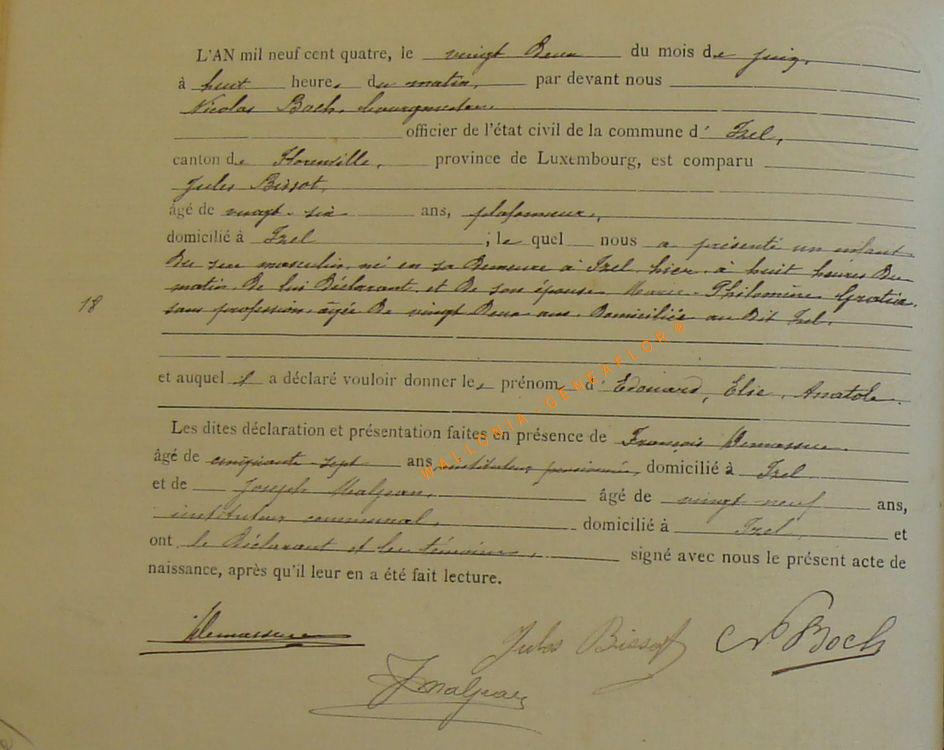 L'AN mil neuf cent quatre, le vingt deux du mois de juin,
à huit heures du matin, par devant nous
Nicolas Bach, bourgmestre,
officier de l'état civil de la commune d' Izel,
canton de Florenville, province de Luxembourg, est comparu
Jules Bissot,
âgé de vingt-six ans, plafonneur,
domicilié à Izel ; le quel nous a présenté un enfant
du sexe masculin, né en sa demeure à Izel, hier, à huit heures du
matin, de lui déclarant, et de son épouse Marie-Philomène Gratia,
18
sans profession, âgée de vingt deux ans, domiciliée au dit Izel.
et auquel il a déclaré vouloir donner les prénoms d' Edouard, Elie, Anatole.
Les dites déclaration et présentation faites en présence de François
âgé de cinquante-sept ans, instituteur pensionné, domicilié à Izel
et de Joseph Maljean, âgé de vingt-neuf ans,
instituteur communal, domicilié à Izel et
ont le déclarant et les témoins, signé avec nous le présent acte de
naissance, après qu'il leur en a été fait lecture.
Jules Bissot
N Bach
J Maljean
WALLONIA-GENEAFLOR®